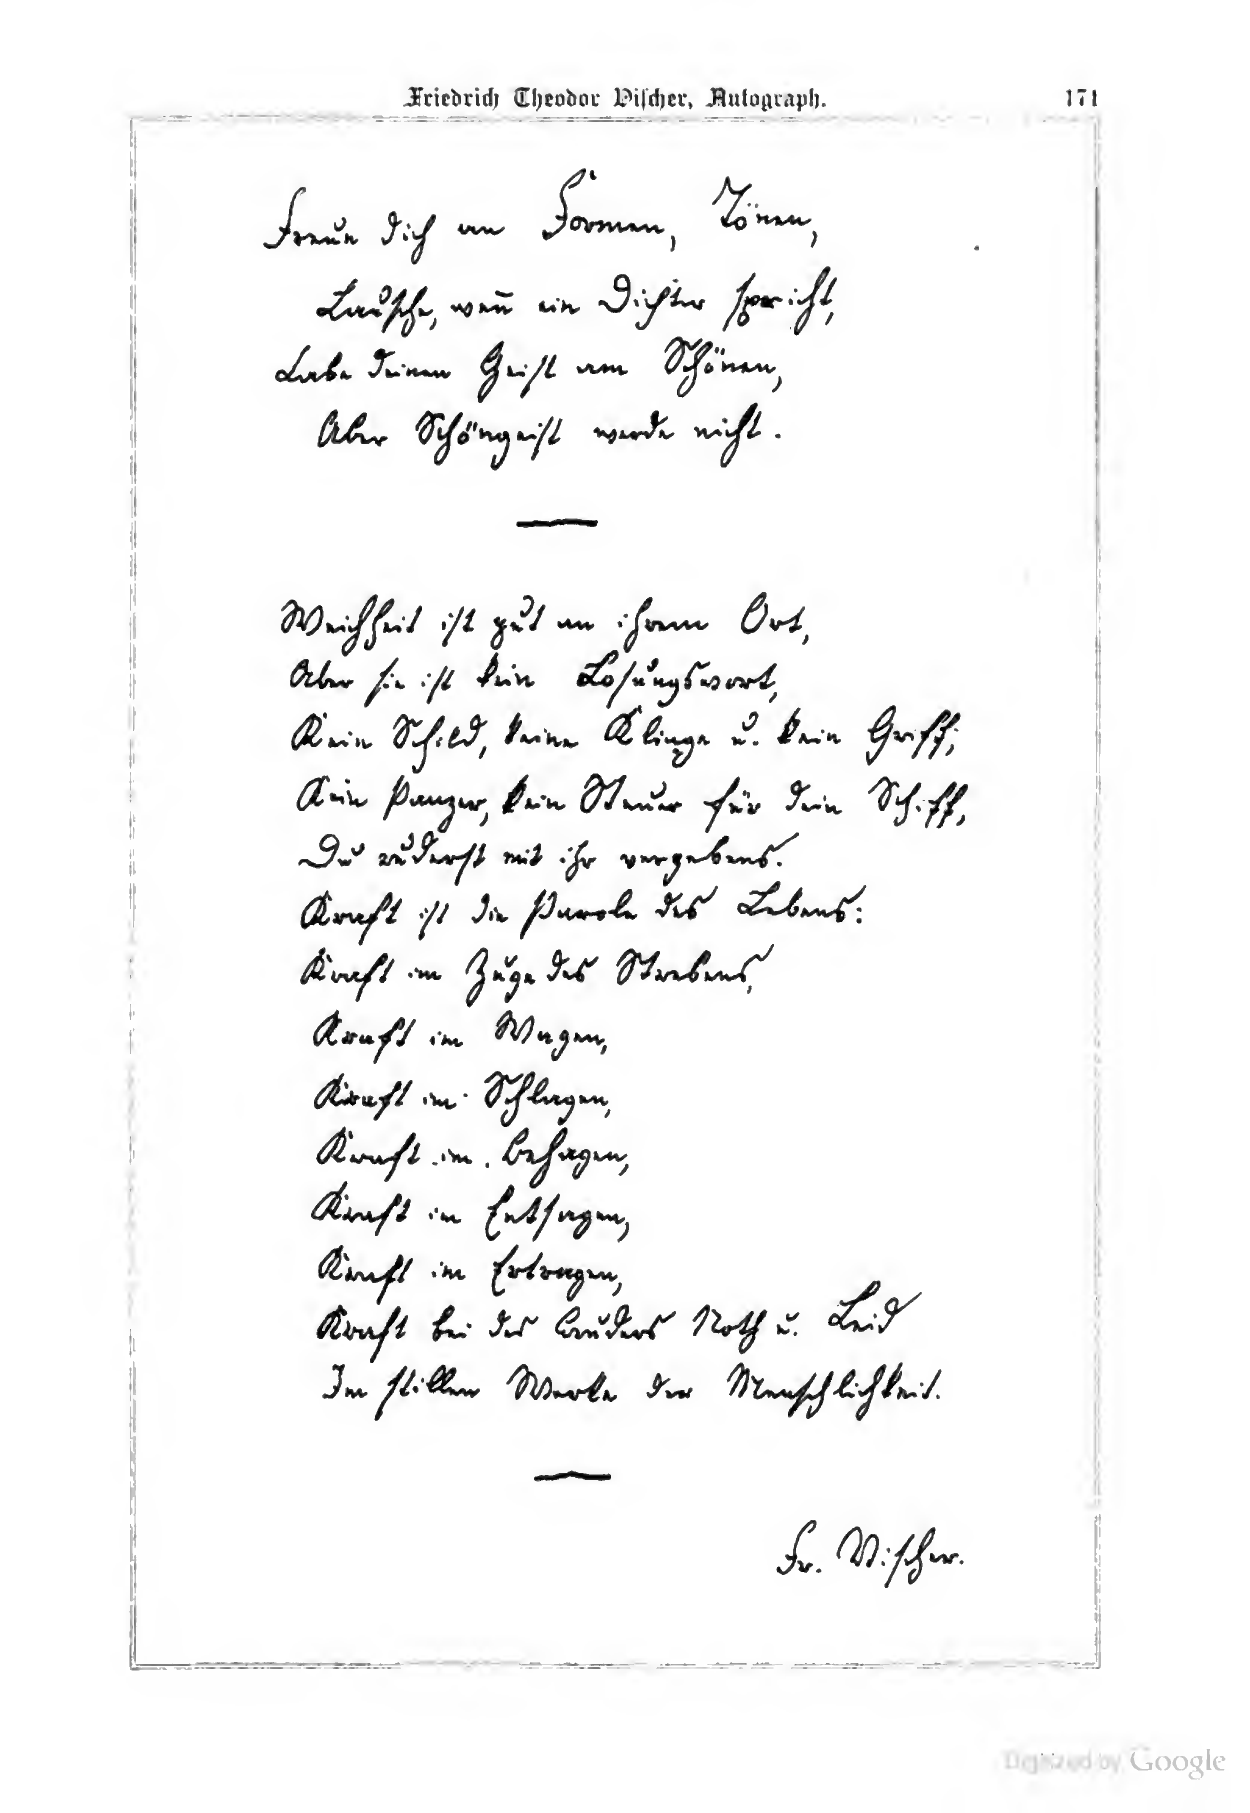 Friedrich Theodor Vischer, Autograph. 171
Freue dich an Formen, Tönen,
Lausche, wen̄ ein Dichter spricht,
Labe deinen Geist am Schönen,
Aber Schöngeist werde nicht.
Weichheit ist gut an ihrem Ort,
Aber sie ist kein Losungswort,
Kein Schild, keine Klinge u. kein Griff,
Kein Panzer, kein Steuer für dein Schiff,
Du ruderst mit ihr vergebens.
Kraft ist die Parole des Lebens:
Kraft im Zuge des Strebens,
Kraft im Wagen,
Kraft im Schlagen,
Kraft im Behagen,
Kraft im Entsagen,
Kraft im Ertragen,
Kraft bei des Bruders Noth u. Leid
Im stillen Werke der Menschlichkeit.
Fr. Vischer.
Digitized by Google